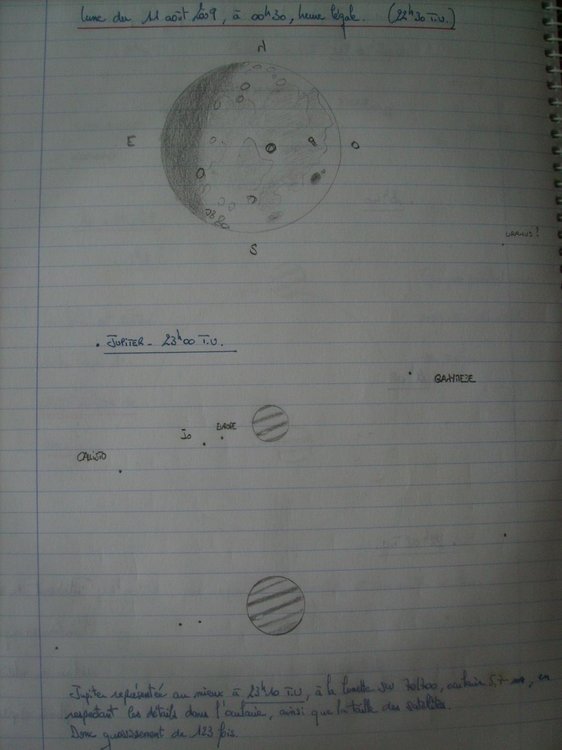 Lune du 11 août 2009, à 00h30, heure légale. (22h30 T.U.)
N
E
O
S
URANUS?
• JUPITER - 23h00 T.U.
GANYMEDE
Io
EUROPE
CALISTO
Jupiter représentée au mieux à 23h10 T.U, à la lunette 70/700, oculaire 5.7 mm, en
respectant les détails dans l'oculaire, ainsi que la taille des satellites.
Donc grossissement de 123 fois.